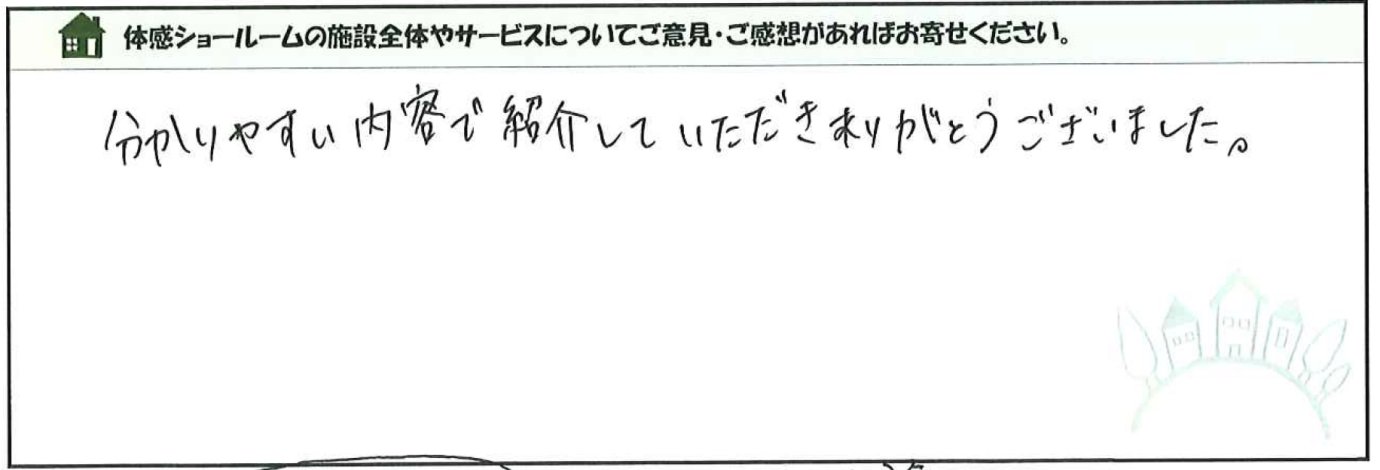 体感ショールームの施設全体やサービスについてご意見・ご感想があればお寄せください。
分かりやすい内容で紹介していただきありがとうございました。